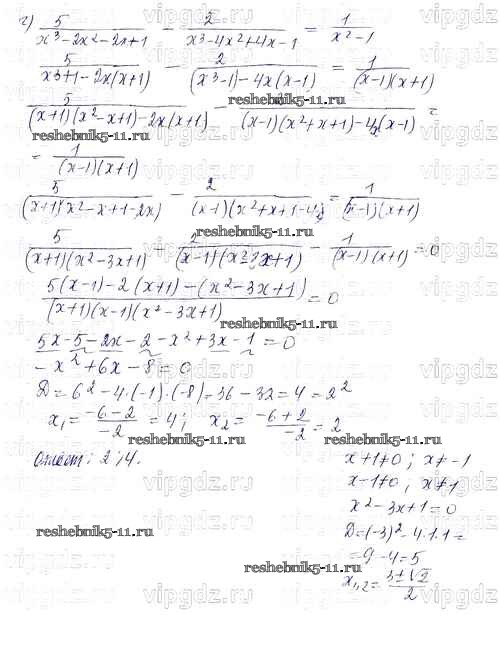 г) 5/(x³-2x²-2x+1) - 2/(x³-4x²+4x-1) = 1/(x²-1)
5/(x³+1-2x(x+1)) - 2/((x³-1)-4x(x-1)) = 1/((x-1)(x+1))
reshebnik5-11.ru
5/((x+1)(x²-x+1)-2x(x+1)) - 2/((x-1)(x²+x+1)-4x(x-1)) =
reshebnik5-11.ru
= 1/((x-1)(x+1))
5/((x+1)(x²-x+1-2x)) - 2/((x-1)(x²+x+1-4x)) = 1/((x-1)(x+1))
5/((x+1)(x²-3x+1)) - 2/((x-1)(x²-3x+1)) - 1/((x-1)(x+1)) = 0
(5(x-1)-2(x+1)-(x²-3x+1))/((x+1)(x-1)(x²-3x+1)) = 0
reshebnik5-11.ru
5x-5-2x-2-x²+3x-1=0
-x²+6x-8=0
D=6²-4·(-1)·(-8)=36-32=4=2²
x₁=(-6-2)/(-2)=4; x₂=(-6+2)/(-2)=2
reshebnik5-11.ru
reshebnik5-11.ru
Ответ: 2; 4.
x+1≠0; x≠-1
x-1≠0, x≠1
x²-3x+1=0
reshebnik5-11.ru
D=(-3)²-4·1·1=
=9-4=5
reshebnik5-11.ru
x₁,₂=(3±√2)/2
vipgdz.ru